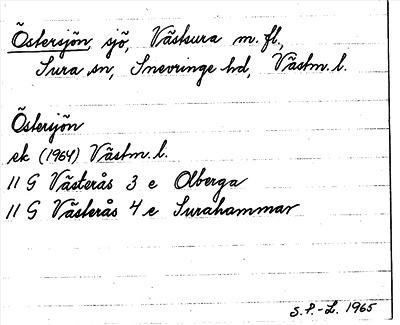 Östersjön, sjö, Västsura m. fl.,
Sura sn, Snevringe hd, Västm. l.
Östersjön
ek (1964) Västm. l.
11 G Västerås 3 e Olberga
11 G Västerås 4 e Surahammar
S. P. - L. 1965